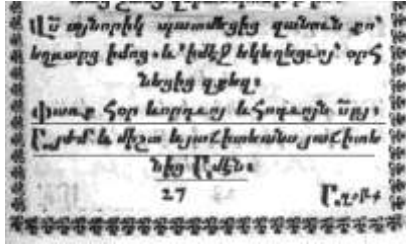 Վս այնորիկ պատմեցից զանուն քո՝
եղբարց իմոց. և ՚ի մէջ եկեղեցւոյ՝ օրհ
նեցից զքեզ։
Փառք Հօր և որդւոյ և Հոգւոյն սրբյ։
Այժմ և միշտ և յաւիտեանս յաւիտե
նից Ամէն։
27